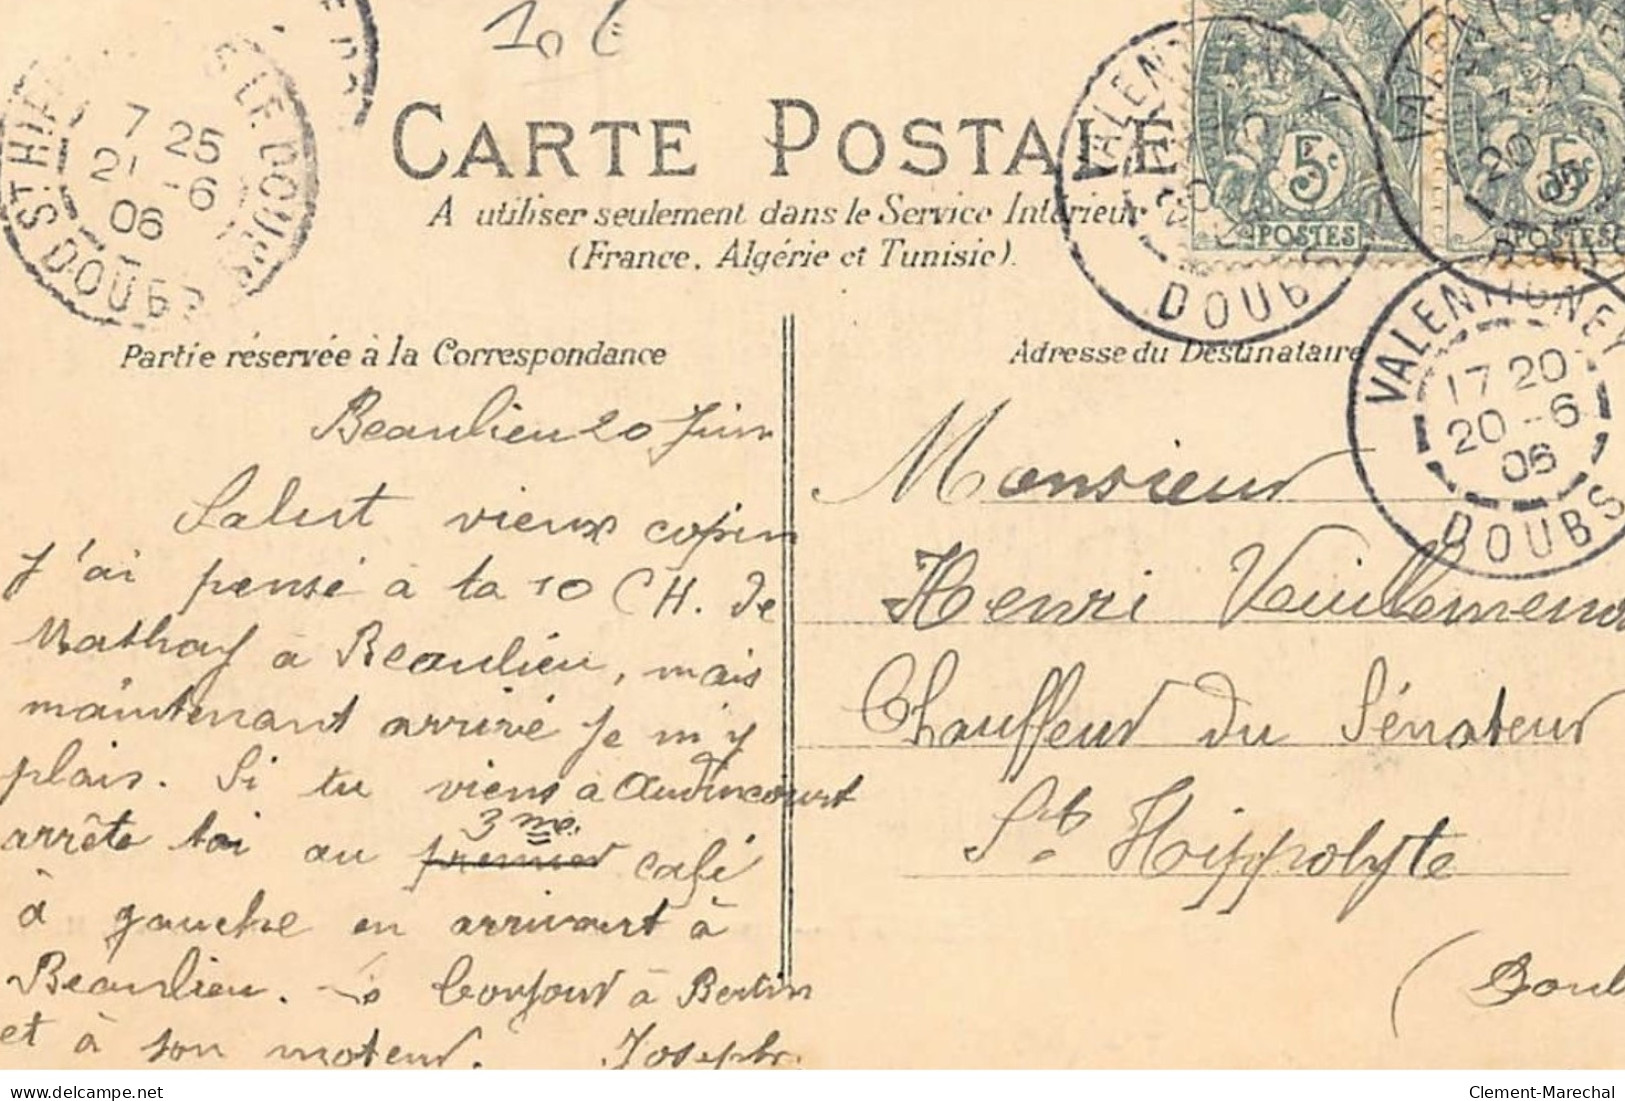 106
CARTE POSTALE
A utiliser seulement dans le Service Intérieur
(France, Algérie et Tunisie).
ST HIPP LE DOUBS
7 25
21 -6
06
DOUBS
VALENTIGNEY
DOUBS
5c
POSTES
VALENTIGNEY
20
06
DOUBS
5c
POSTES
VALENTIGNEY
17 20
20 -6
06
DOUBS
Partie réservée à la Correspondance
Adresse du Destinataire
Beaulieu 20 Juin
Salut vieux copin
J'ai pensé à ta 10 CH. de
Mathay à Beaulieu, mais
maintenant arrivé je m'y
plais. Si tu viens à Audincourt
arrête toi au premier 3me café
à gauche en arrivant à
Beaulieu. Bonjour à Bertin
et à son moteur. Joseph.
Monsieur
Henri Vuillemenot
Chauffeur du Sénateur
St Hippolyte
(Doub
delcampe.net
Clement-Marechal